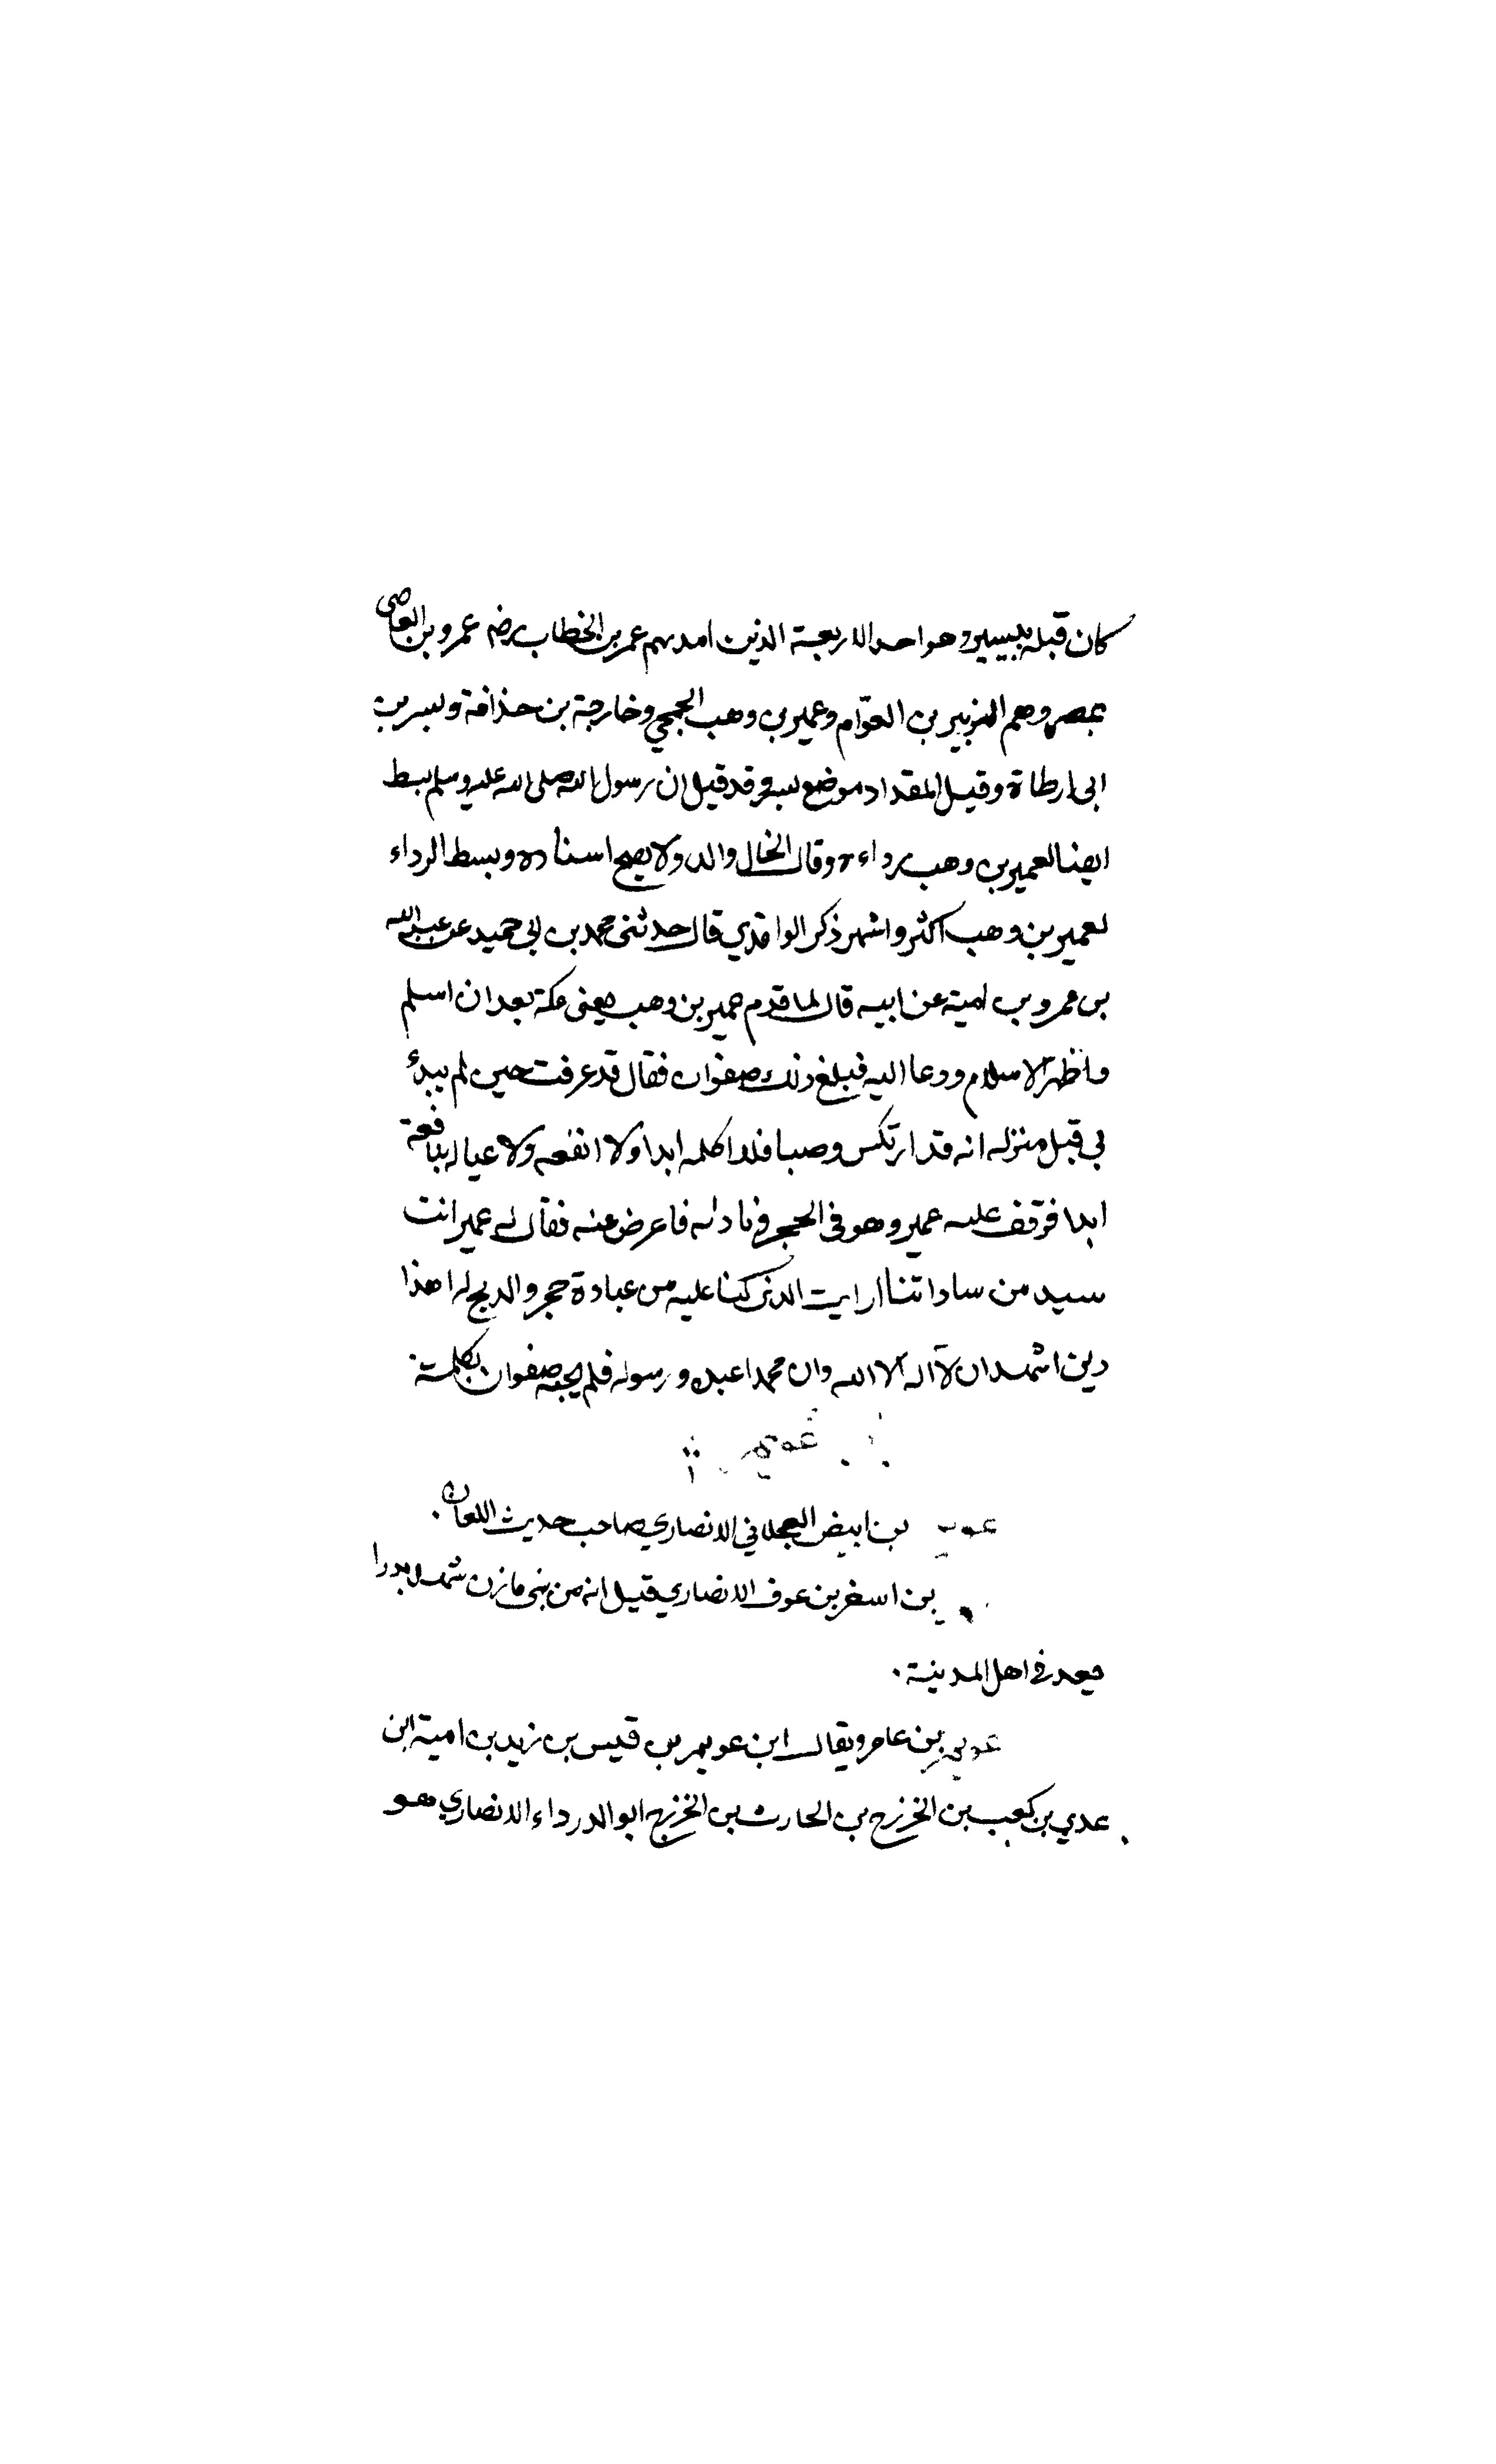 كان قبله بيسير وهو احد الاربعة الذين امدبهم عمر بن الخطاب رضه عمرو بن العاصى
بمصر وهم الزبير بن العوّام وعمير بن وهب الجمحي وخارجة بن حذافة وبسر بن
ابى ارطاة وقيل المقداد موضع بسر وقد قيل ان رسول الله صلى الله عليه وسلم بسط
ايضا لعمير بن وهب رداءه وقال الخال والد ولا يصح اسناده وبسط الرداء
لعمير بن وهب اكثر واشهر ذكر الواقدي قال حدثنى محمد بن ابي حميد عن عبد الله
بن عمرو بن امية عن ابيه قال لما قدم عمير بن وهب يعنى مكة بعد ان اسلم
واظهر الاسلام ودعا اليه فبلغ ذلك صفوان فقال قد عرفت حين لم يبدأ
بي قبل منزله انه قد ارتكس وصبا فلا اكلمه ابدا ولا انفعه ولا عياله بنافعة
ابدا فوقف عليه عمير وهو في الحجر وناداه فاعرض عنه فقال له عمير انت
سيد من ساداتنا ارايت الذى كنا عليه من عبادة حجر والذبح له اهذا
دين اشهد ان لا اله الا الله وان محمدا عبده ورسوله فلم يجبه صفوان بكلمة
بن ابيض العجلاني الانصاري صاحب حديث اللعان
بن اسقر بن عوف الانصاري قيل انه من بنى مازن شهد بدرا
يعد في اهل المدينة
عويمر بن عامر ويقال ابن عويمر بن قيس بن زيد بن امية ابن
عدي بن كعب بن الخزرج بن الحارث بن الخزرج ابو الدرداء الانصاري هو